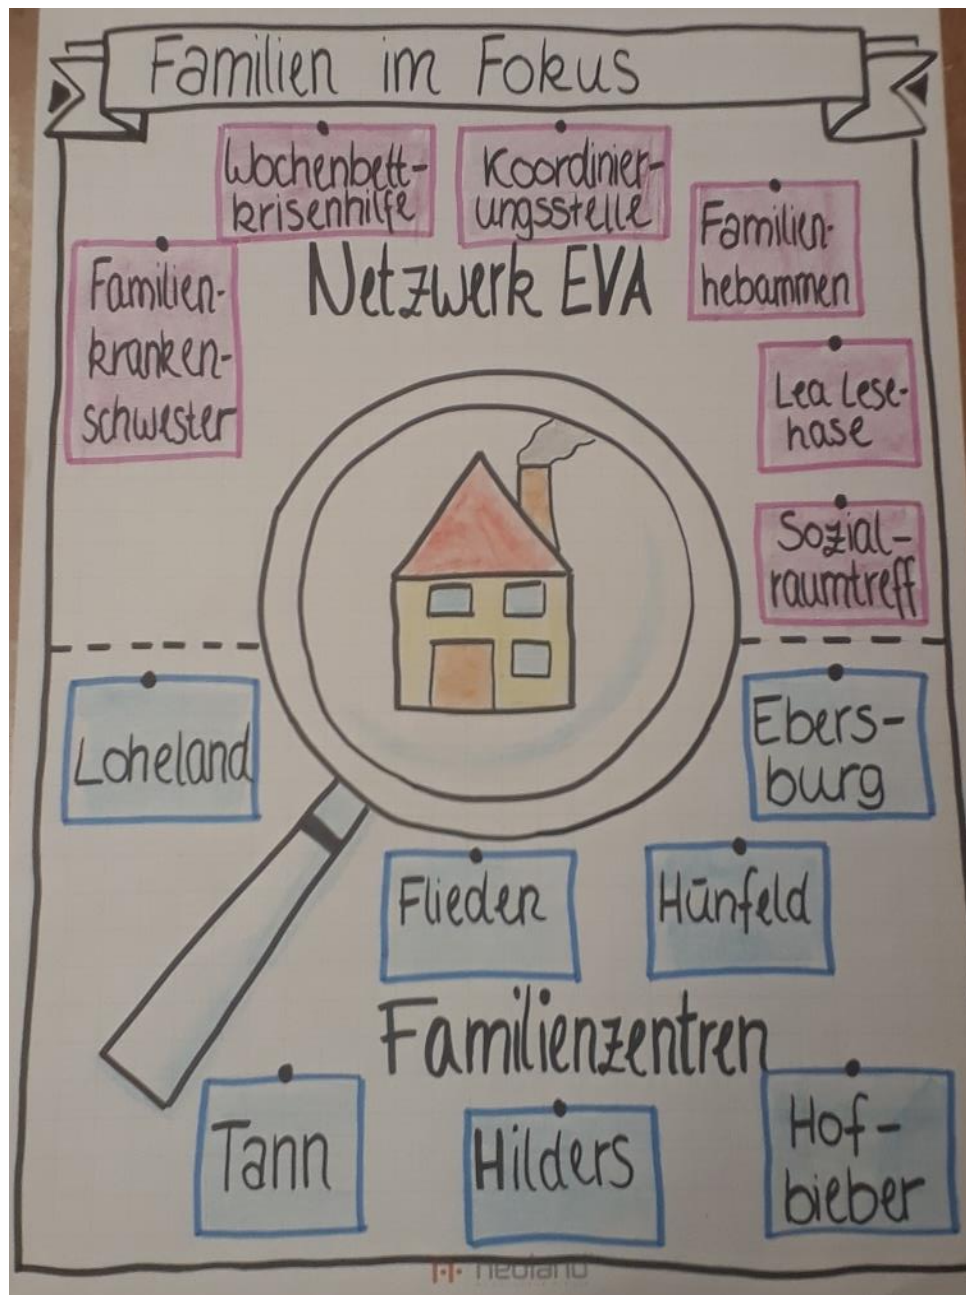 Familien im Fokus
Wochenbett-
krisenhilfe
Koordinier-
ungsstelle
Familien-
hebammen
Netzwerk EVA
Familien-
kranken-
schwester
Lea Lese-
hase
Sozial-
raumtreff
Loheland
Ebers-
burg
Flieden
Hünfeld
Familienzentren
Tann
Hilders
Hof-
bieber
neoland